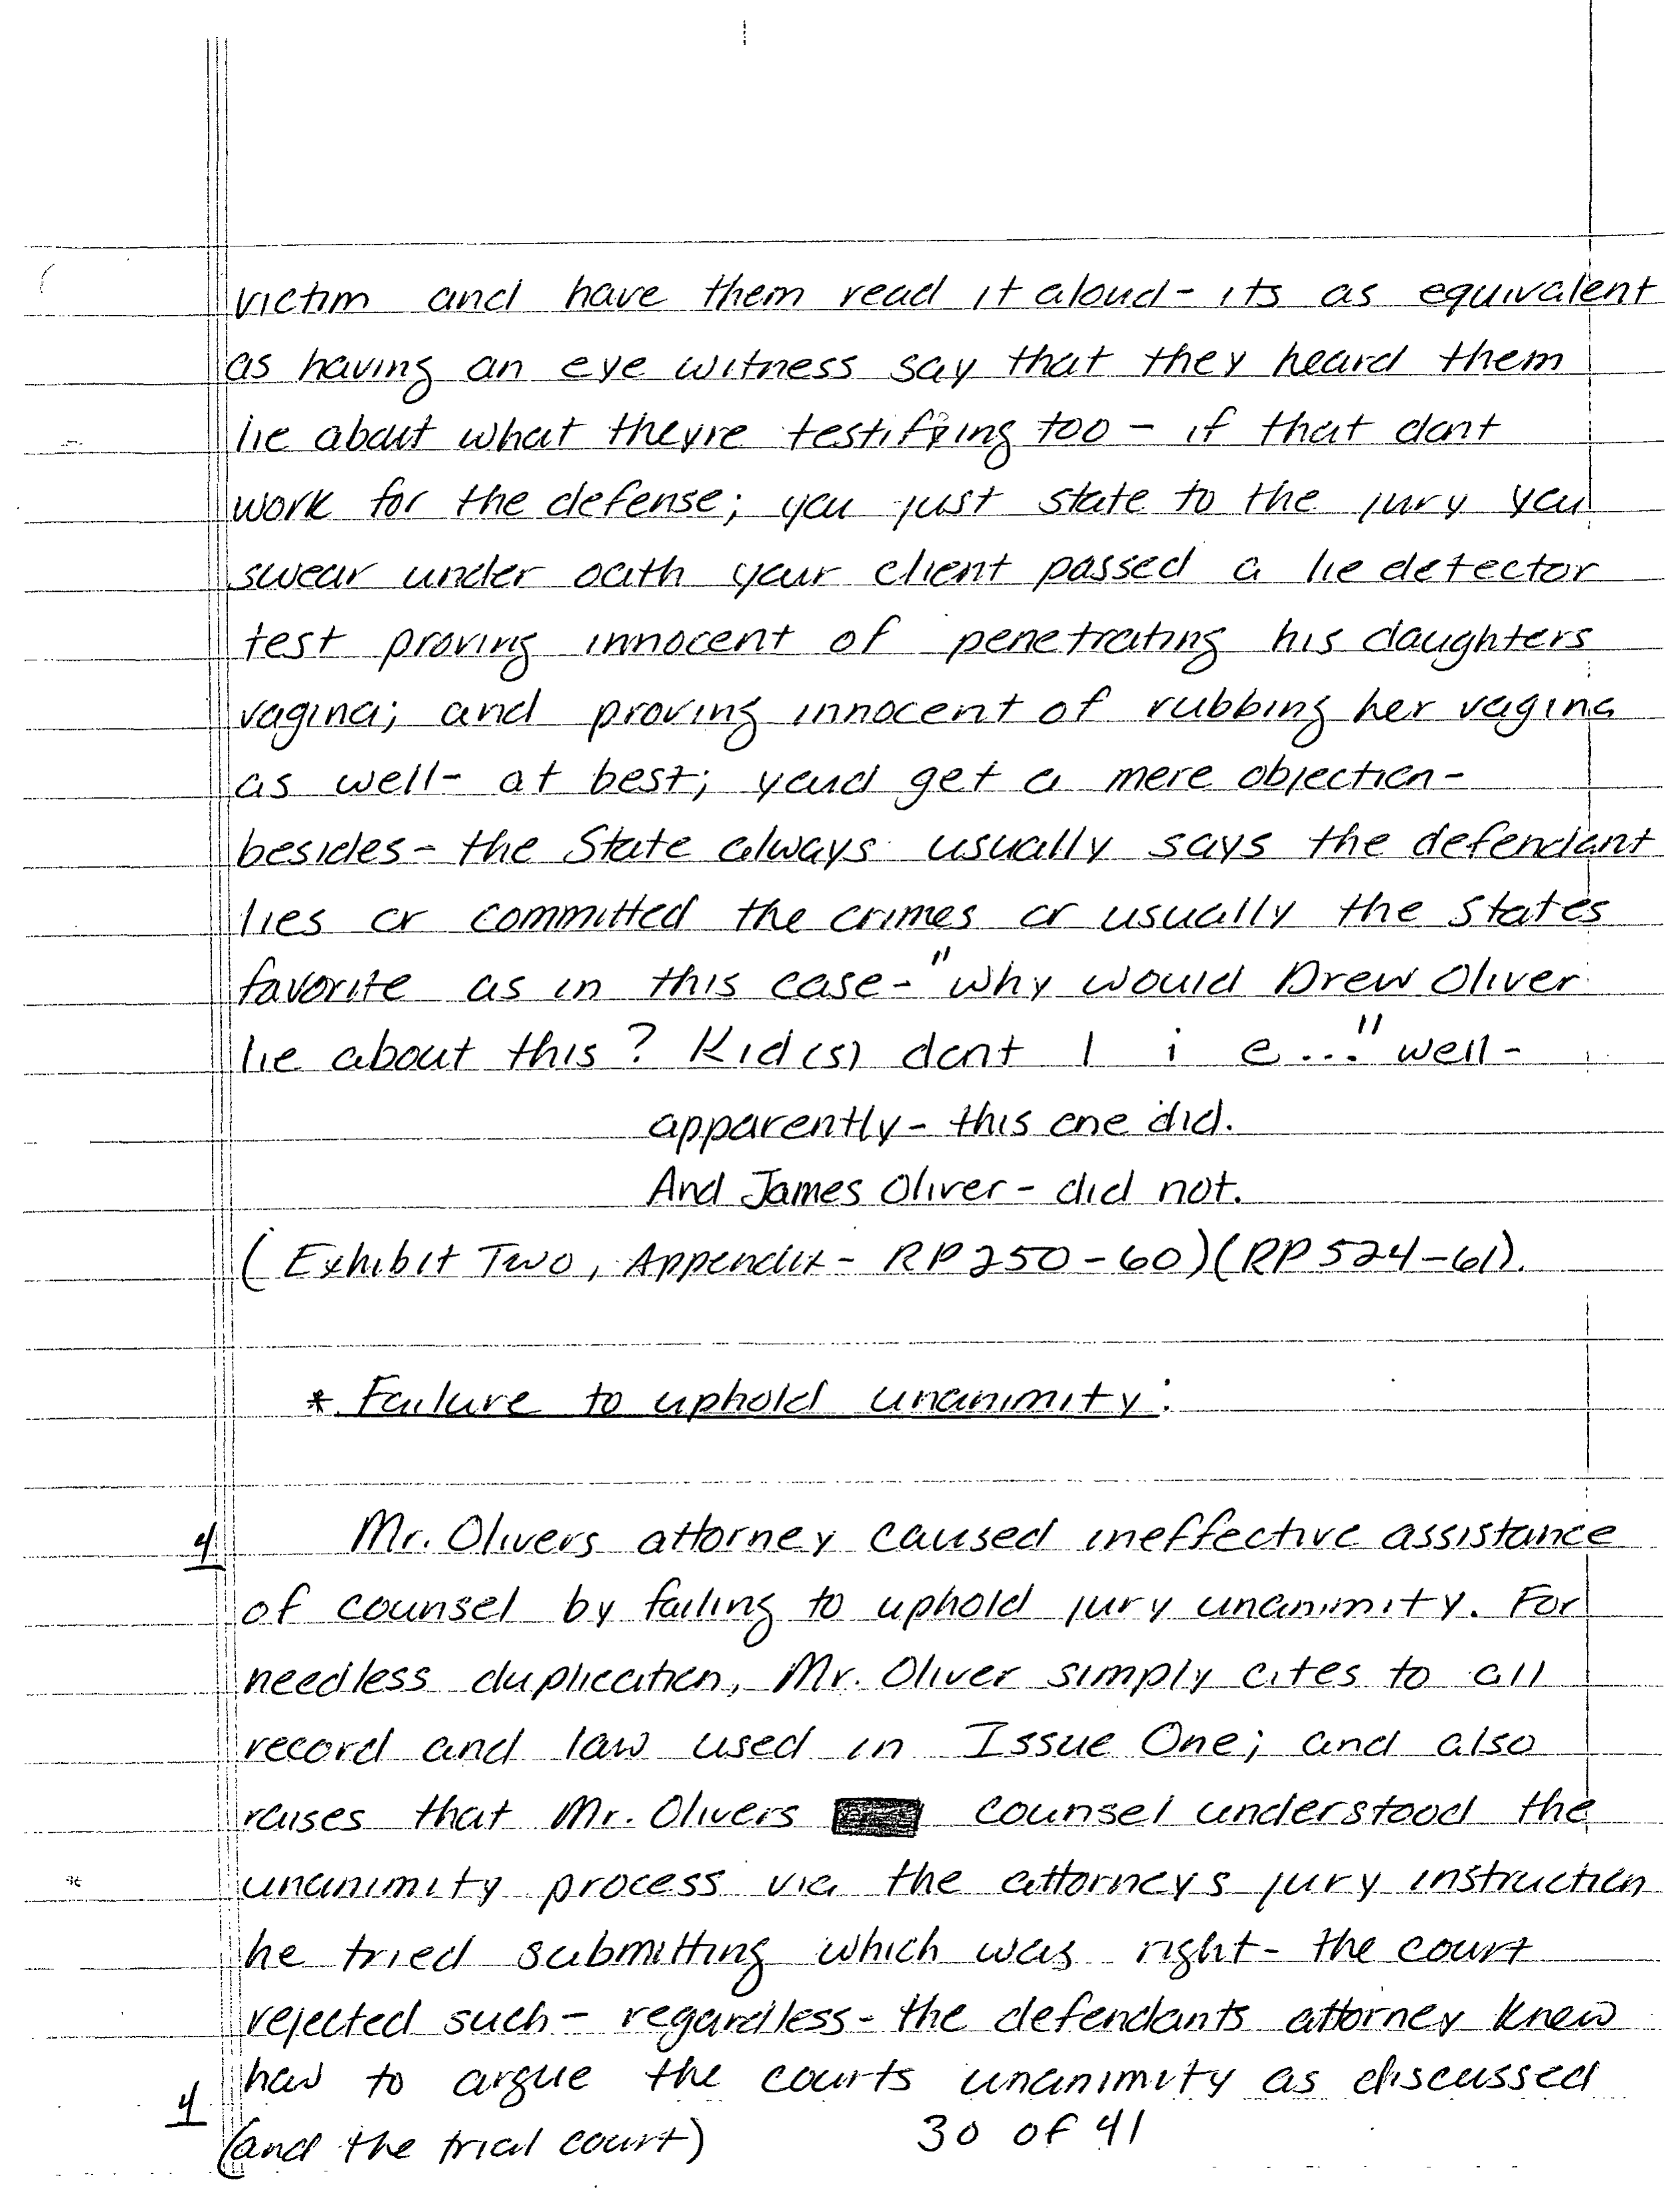 victim and have them read it aloud - its as equivalent
as having an eye witness say that they heard them
lie about what theyre testifying too - if that dont
work for the defense; you just state to the jury you
swear under oath your client passed a lie detector
test proving innocent of penetrating his daughters
vagina; and proving innocent of rubbing her vagina
as well - at best; youd get a mere objection -
besides - the State always usually says the defendant
lies or committed the crimes or usually the states
favorite as in this case - "why would Drew Oliver
lie about this? Kid(s) dont l i e..." well -
apparently - this one did.
And James Oliver - did not.
(Exhibit Two, Appendix - RP 250-60)(RP 524-61).
* Failure to uphold unanimity:
4 Mr. Olivers attorney caused ineffective assistance
of counsel by failing to uphold jury unanimity. For
needless duplication, Mr. Oliver simply cites to all
record and law used in Issue One; and also
raises that Mr. Olivers counsel understood the
unanimity process via the attorneys jury instruction
he tried submitting which was right - the court
rejected such - regardless - the defendants attorney knew
how to argue the courts unanimity as discussed
4 (and the trial court)
30 of 41